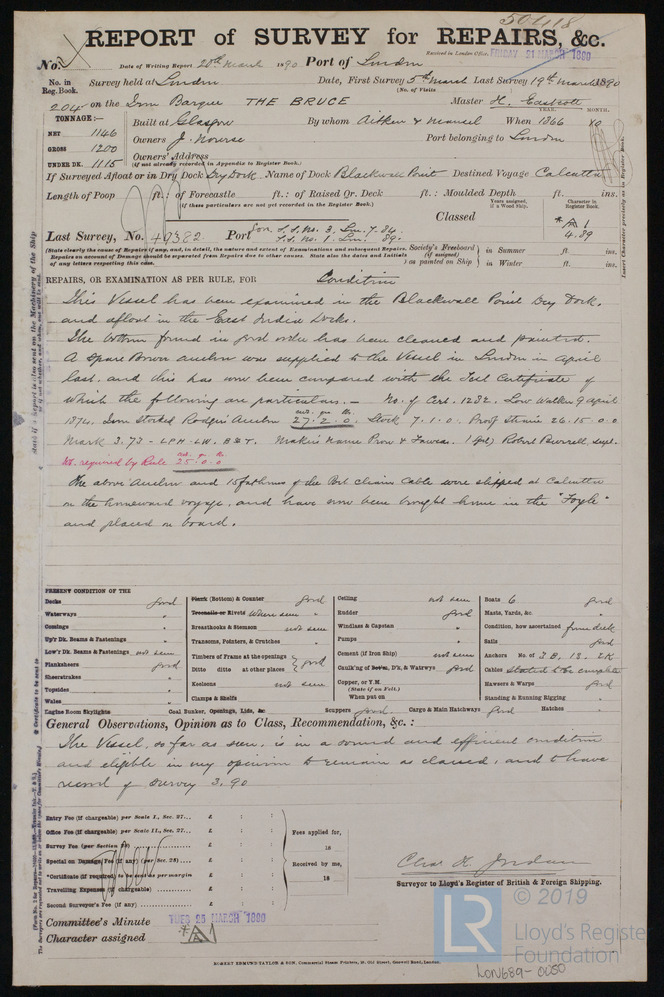 50418
REPORT of SURVEY for REPAIRS, &c.
Received in London Office, FRIDAY 21 MARCH 1890
No. Date of Writing Report 20th March 1890 Port of London
No. in Reg. Book. Survey held at London Date, First Survey 5th March Last Survey 19th March 1890
(No. of Visits
204 on the Iron Barque THE BRUCE Master H. Eastcott
TONNAGE:— YEAR. MONTH.
NET 1146 Built at Glasgow By whom Aitken & Mansel When 1866 10
GROSS 1200 Owners J. Nourse Port belonging to London
UNDER DK. 1115 Owners' Address
(if not already recorded in Appendix to Register Book.)
If Surveyed Afloat or in Dry Dock Dry Dock Name of Dock Blackwall Point Destined Voyage Calcutta
Length of Poop ft.: of Forecastle ft.: of Raised Qr. Deck ft.: Moulded Depth ft. ins.
(if these particulars are not yet recorded in the Register Book.)
Years assigned, if a Wood Ship. Character in Register Book.
Classed *A1 4.89
Last Survey, No. 49382 Port Lon. S.S. No. 3. Lon. 7.84.
S.S. No. 1. Lon. 89.
(State clearly the cause of Repairs if any, and, in detail, the nature and extent of Examinations and subsequent Repairs.
Repairs on account of Damage should be separated from Repairs due to other causes. State also the dates and Initials
of any letters respecting this case.
Society's Freeboard (if assigned) as painted on Ship in Summer ft. ins.
in Winter ft. ins.
Insert Character precisely as in Register Book.
REPAIRS, OR EXAMINATION AS PER RULE, FOR Condition
This Vessel has been examined in the Blackwall Point Dry Dock,
and afloat in the East India Docks.
The bottom found in good order has been cleaned and painted.
A spare Bower anchor was supplied to the vessel in London in April
last, and this has now been compared with the Test Certificate of
which the following are particulars.— No. of Cert. 1232. Low Walker 9 April
1874, Iron Stocked Rodgers Anchor 27.2.0. Stock 7.1.0. Proof Strain 26.15.0.0
Mark 3.73 - LPH-LW. Makers Name Robert Burrell, Supt.
Wt. required by Rule 25.0.0
The above Anchor and 15 fathoms of the Port chain Cable were slipped at Calcutta
on the homeward voyage, and have now been brought home in the "Foyle"
and placed on board.
PRESENT CONDITION OF THE
Decks good
Waterways "
Comings "
Upr Dk. Beams & Fastenings "
Low'r Dk. Beams & Fastenings not seen
Planksheers good
Sheerstrakes "
Topsides "
Wales "
Engine Room Skylights
Plank (Bottom) & Counter good
Treenails or Rivets Where seen "
Breasthooks & Stemson not seen
Transoms, Pointers, & Crutches "
Timbers of Frame at the openings good
Ditto ditto at other places
Keelsons not seen
Clamps & Shelfs
Coal Bunker, Openings, Lids, &c
Ceiling not seen
Rudder good
Windlass & Capstan "
Pumps "
Cement (if Iron Ship) not seen
Caulk'g of Bot'm, D'k, & Watrwys good
Copper, or Y.M. (State if on Felt.)
When put on
Scuppers good. Cargo & Main Hatchways good Hatches "
Boats 6 good
Masts, Yards, &c. "
Condition, how ascertained from deck
Sails good
Anchors No. of 3B. 1S. 2K
Cables stated to be complete
Hawsers & Warps good
Standing & Running Rigging "
General Observations, Opinion as to Class, Recommendation, &c. :
The Vessel, so far as seen, is in a sound and efficient condition
and eligible in my opinion to remain as classed, and to have
record of survey 3.90
Entry Fee (if chargeable) per Scale I., Sec. 27... £ : :
Office Fee (if chargeable) per Scale II., Sec. 27... £ : :
Survey Fee (per Section 28) £ : :
Special or Damage Fee (if any) (per Sec. 28)... £ : :
*Certificate (if required) to be sent as per margin £ : :
Travelling Expenses (if chargeable) £ : :
Second Surveyor's Fee (if any) £ : :
Fees applied for,
18
Received by me,
18
Chas H. Jordan
Surveyor to Lloyd's Register of British & Foreign Shipping.
Committee's Minute TUES 25 MARCH 1890
Character assigned *A1
ROBERT EDMUND TAYLOR & SON, Commercial Steam Printers, 19, Old Street, Goswell Road, London.
© 2019
LR Lloyd's Register Foundation
LON689-0050